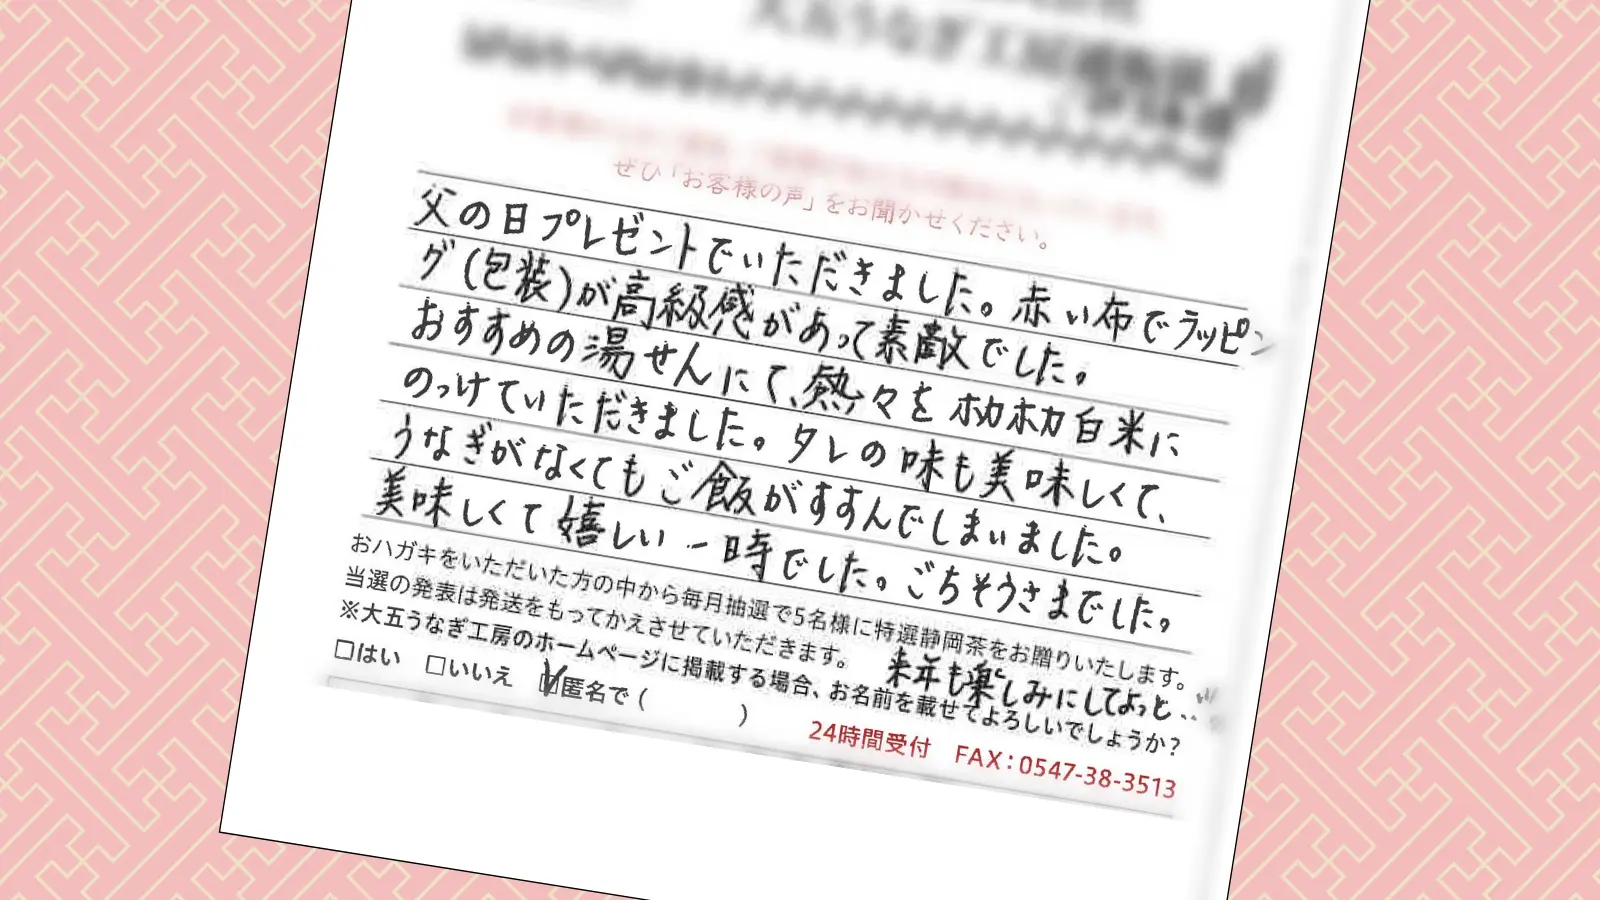 大五うなぎ工房
ぜひ「お客様の声」をお聞かせください。
父の日プレゼントでいただきました。赤い布でラッピン
グ(包装)が高級感があって素敵でした。
おすすめの湯せんにて、熱々をホカホカ白米に
のっけていただきました。タレの味も美味しくて、
うなぎがなくてもご飯がすすんでしまいました。
美味しくて嬉しい一時でした。ごちそうさまでした。
来年も楽しみにしてよっと‥
おハガキをいただいた方の中から毎月抽選で5名様に特選静岡茶をお贈りいたします。
当選の発表は発送をもってかえさせていただきます。
※大五うなぎ工房のホームページに掲載する場合、お名前を載せてよろしいでしょうか?
□はい □いいえ ☑匿名で( )
24時間受付 FAX:0547-38-3513